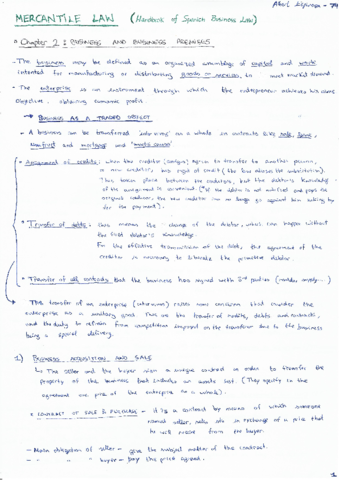 MERCANTILE LAW (Handbook of Spanish Business Law)
Chapter 2: BUSINESS AND BUSINESS PREMISES
- The business may be defined as an organized assemblage of capital and work
intended for manufacturing or distributing goods or services, to meet market demand.
- The enterprise is an instrument through which the entrepreneur achieves his same
objective: obtaining economic profit.
→ BUSINESS AS A TRADED OBJECT
- A business can be transferred as a whole in contracts like sale, lease,
usufruct and mortgage and
• Assignment of credits: when the creditor (assigns) agree to transfer to another person,
a new creditor, his right of credit
This takes place between the creditors, but the debtor's knowledge
of the assignment is convenient. (If the debtor is not notified and pays the
original creditor, the new creditor can no longer go against him asking by
for the payment).
• Transfer of debts: this means the change of the debtor, what can't happen without
the first debtor's knowledge.
For the effective transmission of the debts, the agreement of the
creditor is necessary to liberate the primitive debtor.
• Transfer of all contracts that the business has signed with 3rd parties
→ The transfer of an enterprise raises some concerns that consider the
enterprise as a whole. Thus are the transfer of credits, debts and contracts,
and the duty to refrain from competition imposed on the transferor due to the business
being a special delivery.
1) BUSINESS ACQUISITION AND SALE
↳ The seller and the buyer sign a unique contract in order to transfer the
property of the business that includes an assets list. (They specify in the
agreement one price of the enterprise as a whole).
• CONTRACT OF SALE & PURCHASE - it is a contract by means of which someone
named seller, sells sth in exchange of a price that
he will receive from the buyer.
- Main obligation of seller - give the material matter of the contract.
- " " " buyer - pay the price agreed.
1